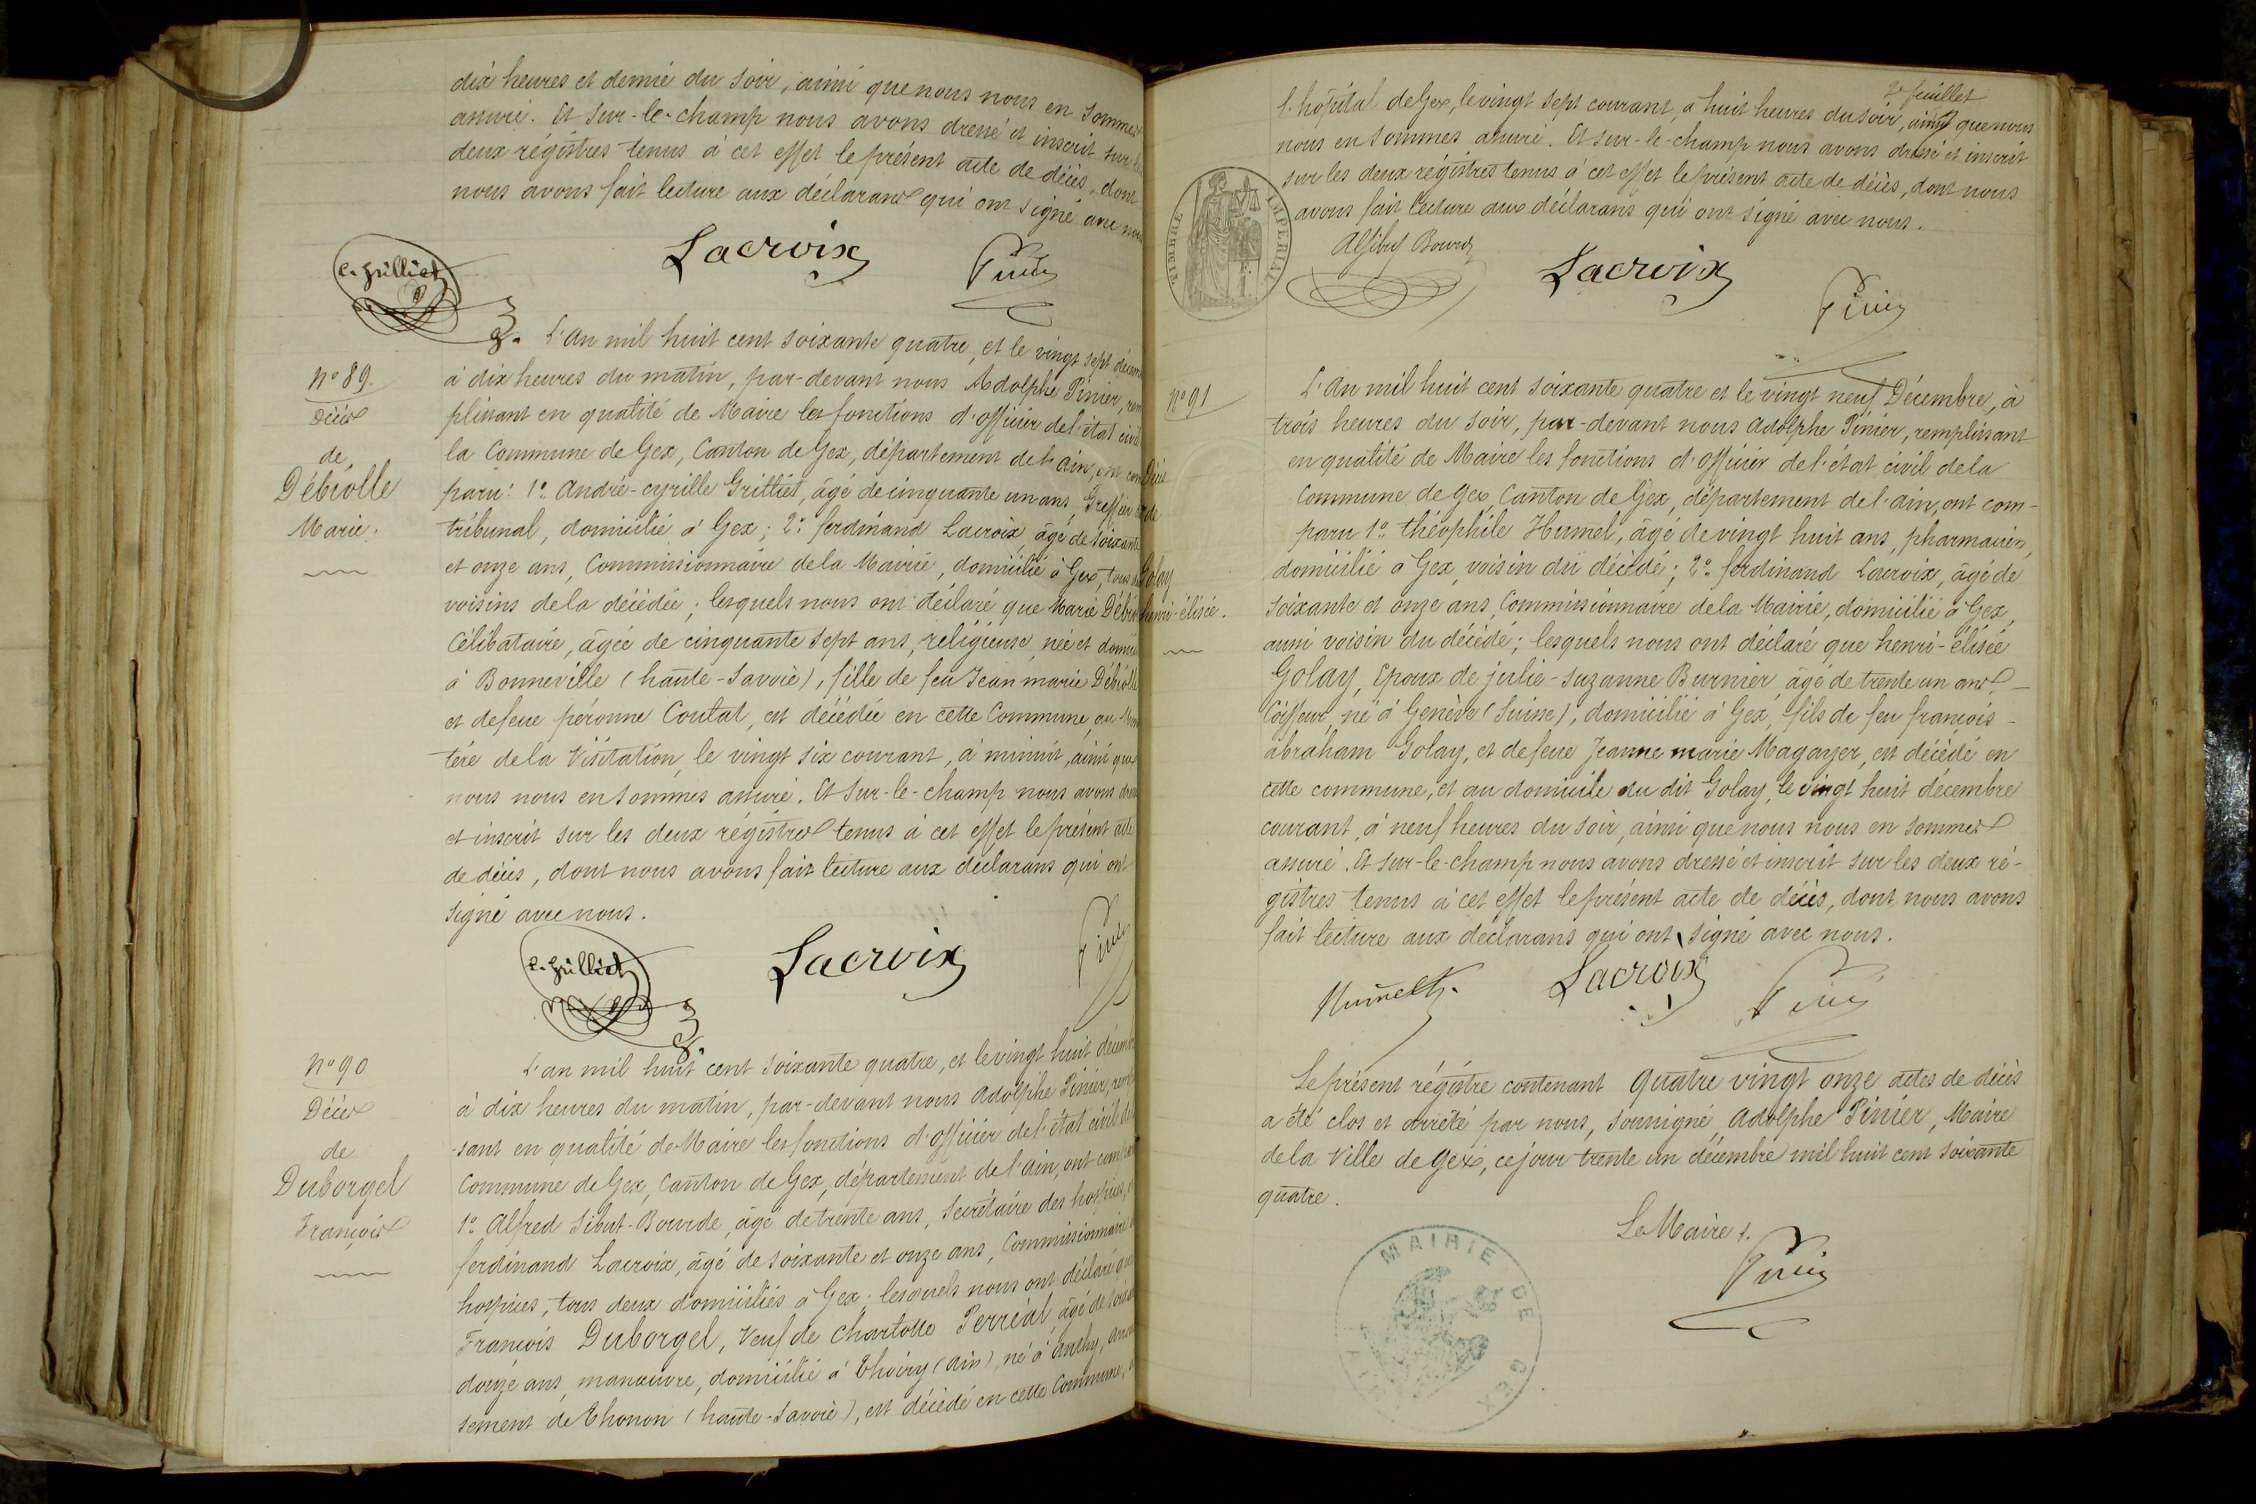 dix heures et demie du soir, ainsi que nous nous en sommes
assuré. Et sur-le-champ nous avons dressé et inscrit sur les
deux régistres tenus à cet effet le présent acte de décès, dont
nous avons fait lecture aux déclarans qui ont signé avec nous
C. Grilliet
Lacroix
Pinier
N° 89.
Décès
de
Débiolle
Marie.
L'an mil huit cent soixante quatre, et le vingt sept décem
à dix heures du matin, par-devant nous Adolphe Pinier, rem
plissant en qualité de Maire les fonctions d'officier de l'état civil
la Commune de Gex, Canton de Gex, département de l'ain, ont com
paru: 1° André-cyrille Grilliet, âgé de cinquante un ans, Greffier
tribunal, domicilié à Gex; 2° ferdinand Lacroix, âgé de soixante
et onze ans, Commissionnaire de la Mairie, domicilié à Gex, tous
voisins de la décédée; lesquels nous ont déclaré que Marie Débio
Célibataire, âgée de cinquante sept ans, religieuse, née et domici
à Bonneville (haute-Savoie), fille de feu Jean marie Débiolle
et de feue péronne Coutat, est décédée en cette Commune, au Monas
tère de la Visitation, le vingt six courant, à minuit, ainsi que
nous nous en sommes assuré. Et sur-le-champ nous avons dressé
et inscrit sur les deux régistres tenus à cet effet le présent acte
de décès, dont nous avons fait lecture aux déclarans qui ont
signé avec nous.
C. Grilliet
Lacroix
Pinier
N° 90
Décès
de
Duborgel
François
L'an mil huit cent soixante quatre, et le vingt huit décembre
à dix heures du matin, par-devant nous Adolphe Pinier, remplis
-sant en qualité de Maire les fonctions d'officier de l'état civil de la
Commune de Gex, Canton de Gex, département de l'ain, ont comparu
1° Alfred Sibut-Bourde, âgé de trente ans, Secrétaire des hospices,
ferdinand Lacroix, âgé de soixante et onze ans, Commissionnaire
hospices, tous deux domiciliés à Gex; lesquels nous ont déclaré que
François Duborgel, Veuf de Charlotte Perréal, âgé de soixante
douze ans, manœuvre, domicilié à Thoiry (ain), né à anthy, arron
sement de Thonon (haute-Savoie), est décédé en cette Commune, à
2e feuillet
l'hôpital de Gex, le vingt sept courant, à huit heures du soir, ainsi que nous
nous en sommes assuré. Et sur-le-champ nous avons dressé et inscrit
sur les deux régistres tenus à cet effet le présent acte de décès, dont nous
avons fait lecture aux déclarans qui ont signé avec nous.
TIMBRE IMPERIAL
A Sibut Bourde
Lacroix
Pinier
N° 91
Décès
de
Golay
henri-élisée.
L'an mil huit cent soixante quatre et le vingt neuf Décembre, à
trois heures du soir, par-devant nous Adolphe Pinier, remplissant
en qualité de Maire les fonctions d'officier de l'état civil de la
Commune de Gex, Canton de Gex, département de l'ain, ont com-
paru 1° théophile Humel, âgé de vingt huit ans, pharmacien,
domicilié à Gex, voisin du décédé; 2° ferdinand Lacroix, âgé de
soixante et onze ans, Commissionnaire de la Mairie, domicilié à Gex,
aussi voisin du décédé; lesquels nous ont déclaré que henri-élisée
Golay, Epoux de julie-Suzanne Burnier âgé de trente un ans, -
Coiffeur, né à Genève (Suisse), domicilié à Gex, fils de feu françois-
abraham Golay, et de feue Jeanne marie Magayer, est décédé en
cette commune, et au domicile du dit Golay, le vingt huit décembre
courant, à neuf heures du soir, ainsi que nous nous en sommes
assuré. Et sur-le-champ nous avons dressé et inscrit sur les deux ré-
gistres tenus à cet effet le présent acte de décès, dont nous avons
fait lecture aux déclarans qui ont signé avec nous.
Humelh.
Lacroix
Pinier
Le présent régistre contenant quatre vingt onze actes de décès
a été clos et arrêté par nous, soussigné Adolphe Pinier, Maire
de la Ville de Gex, ce jour trente un décembre mil huit cent soixante
quatre.
Le Maire.
Pinier
MAIRIE DE GEX